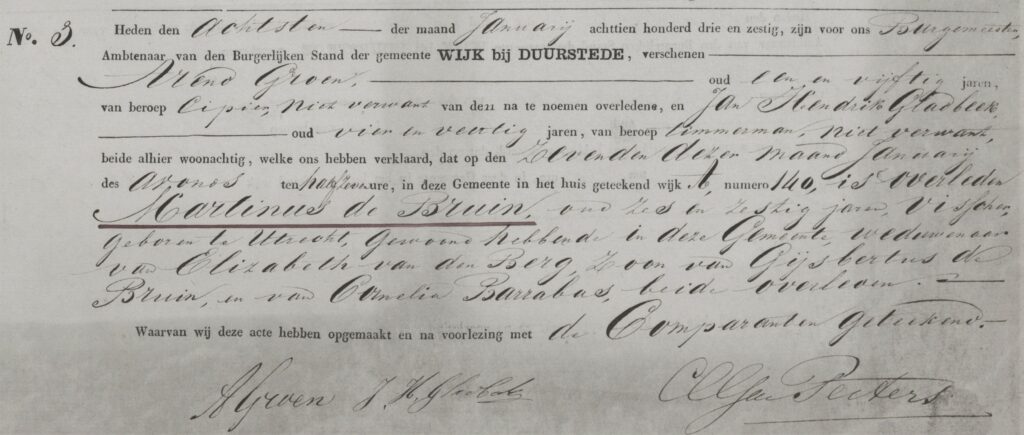 No. 3. Heden den Achtsten der maand Januarij achttien honderd drie en zestig, zijn voor ons Burgemeester,
Ambtenaar van den Burgerlijken Stand der gemeente WIJK bij DUURSTEDE, verschenen
Arend Groen, oud een en vijftig jaren,
van beroep Cipier, niet verwant van den na te noemen overledene, en Jan Hendrik Gladbeek
oud vier en veertig jaren, van beroep timmerman, niet verwant,
beide alhier woonachtig, welke ons hebben verklaard, dat op den Zevenden dezer maand Januarij
des avonds ten half zeven ure, in deze Gemeente in het huis geteekend wijk A, numero 140, is overleden
Martinus de Bruin, oud zes en zestig jaren, Visscher,
geboren te Utrecht, gewoond hebbende in deze Gemeente, weduwenaar
van Elizabeth van den Berg, Zoon van Gijsbertus de
Bruin, en van Cornelia Barrabas, beide overleden.
Waarvan wij deze acte hebben opgemaakt en na voorlezing met de Comparanten geteekend.
AGroen J. H. Gladbeek Peeters